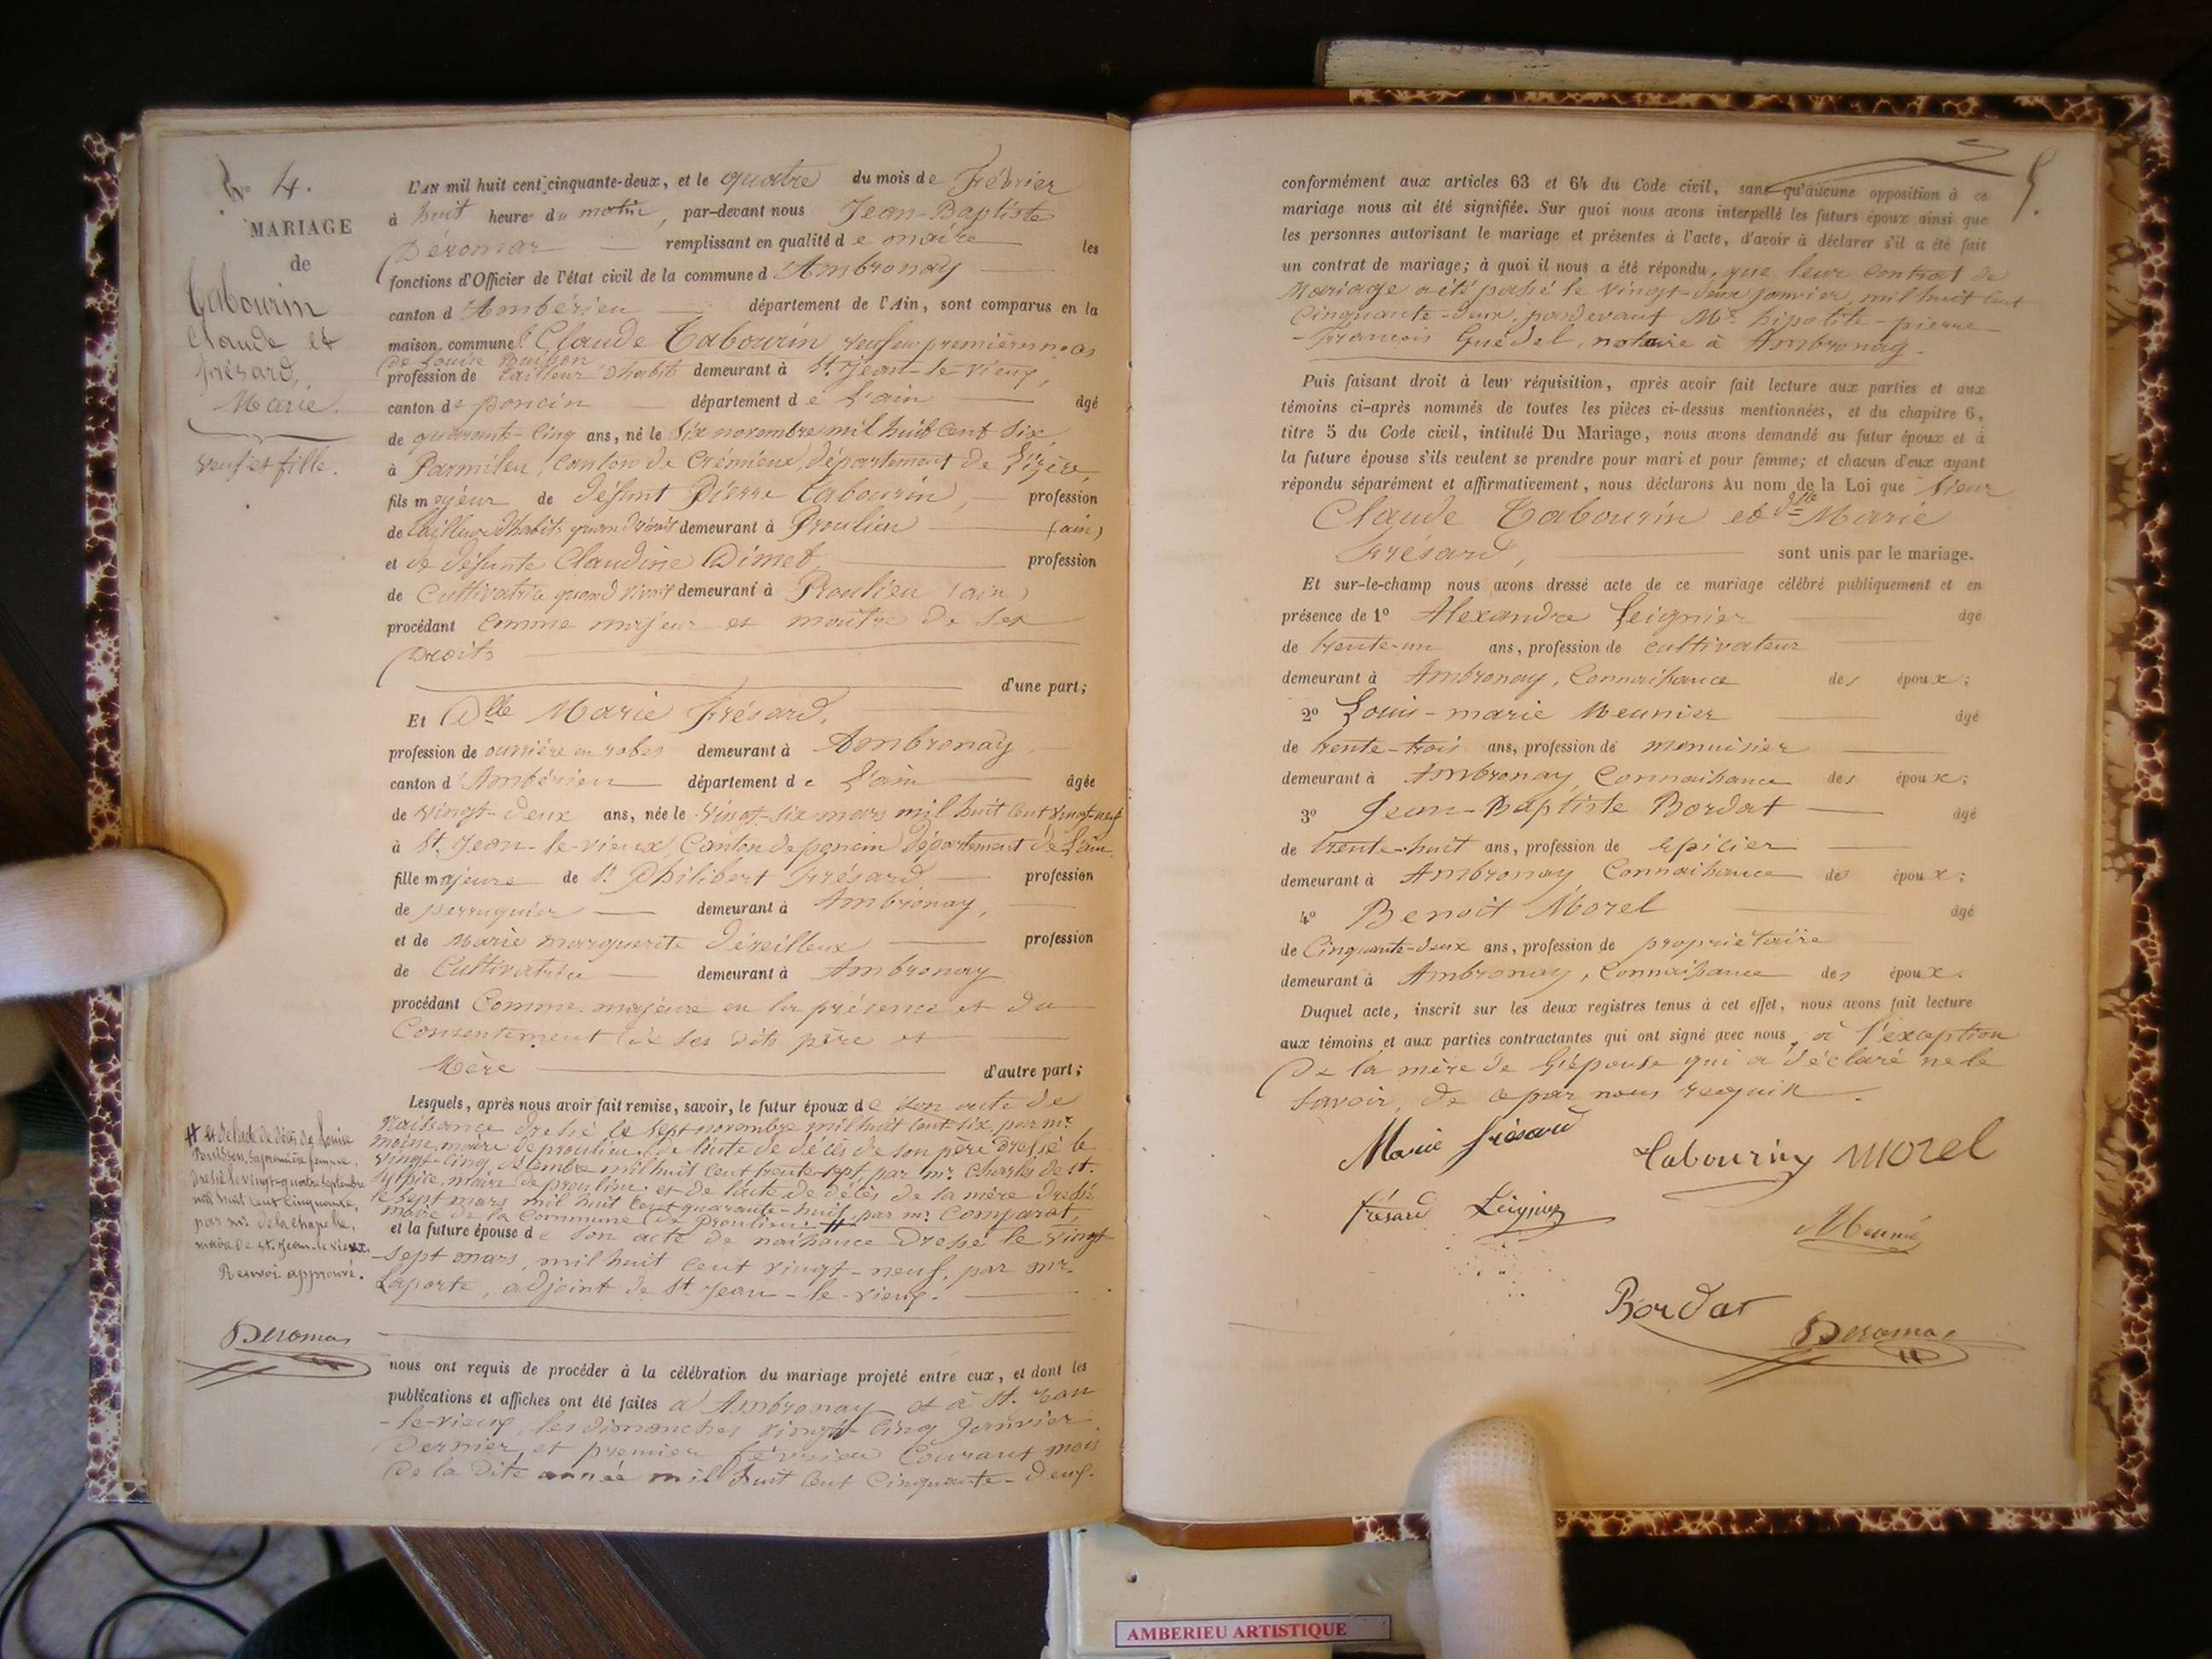 No 4.
MARIAGE
de
Tabourin
Claude et
frésard,
Marie.
veuf et fille.
L'AN mil huit cent cinquante-deux, et le quatre du mois de Février
à huit heures du matin, par-devant nous Jean-Baptiste
Déromas remplissant en qualité de maire les
fonctions d'Officier de l'état civil de la commune d'Ambronay
canton d'Ambérieu département de l'Ain, sont comparus en la
maison commune Sr Claude Tabourin veuf en premières noces
de Louise Buisson
profession de tailleur d'habits demeurant à St Jean-le-vieux,
canton de poncin département de l'ain âgé
de quarante-cinq ans, né le six novembre mil huit cent six,
à Parmilieu, canton de Crémieux, département de l'izère,
fils majeur de défunt Pierre Tabourin, profession
de tailleur d'habits quand vivait demeurant à Proulieu (ain)
et de défunte Claudine Dimet, profession
de Cultivatrice quand vivait demeurant à Proulieu (ain)
procédant comme majeur et maître de ses
Droits
d'une part;
Et Dlle Marie frésard,
profession de ouvrière en robes demeurant à Ambronay
canton d'Ambérieu département de l'ain âgée
de vingt-deux ans, née le vingt-six mars mil huit cent vingt-neuf
à St. Jean-le-vieux, Canton de poncin Département de l'ain,
fille majeure de Sr Philibert frésard profession
de perruquier demeurant à Ambronay,
et de Marie marguerite Déreilleux profession
de Cultivatrice demeurant à Ambronay
procédant Comme majeure en la présence et du
Consentement de ses dits père et
Mère d'autre part;
Lesquels, après nous avoir fait remise, savoir, le futur époux de son acte de
naissance dressé le sept novembre mil huit cent six, par mr
moine, maire de proulieu, de l'acte de décès de son père dressé le
vingt-cinq décembre mil huit cent trente-sept, par mr Charles de st.
Sulpice, maire de proulieu et de l'acte de décès de sa mère dressé
le sept mars mil huit cent quarante-huit, par mr. Comparat,
maire de la Commune de Proulieu. #
et la future épouse de son acte de naissance dressé le vingt
sept mars, mil huit cent vingt-neuf, par mr.
Laporte, adjoint de St Jean-le-vieux.
# et de l'acte de décès de Louise
Buisson, sa première femme,
dressé le vingt-quatre septembre
mil huit cent cinquante,
par mr. de la chapelle,
maire de st. Jean-le-vieux.
Renvoi approuvé.
Deromas
nous ont requis de procéder à la célébration du mariage projeté entre eux, et dont les
publications et affiches ont été faites à Ambronay et à St. Jean
-le-vieux, les dimanches vingt-cinq Janvier
dernier, et premier février Courant mois
De la dite année mil huit cent cinquante-deux.
5.
conformément aux articles 63 et 64 du Code civil, sans qu'aucune opposition à ce
mariage nous ait été signifiée. Sur quoi nous avons interpellé les futurs époux ainsi que
les personnes autorisant le mariage et présentes à l'acte, d'avoir à déclarer s'il a été fait
un contrat de mariage; à quoi il nous a été répondu, que leur Contrat de
Mariage a été passé le vingt-deux janvier, mil huit cent
Cinquante-deux, pardevant Me. hipolite-pierre
-François Guédel, notaire à Ambronay.
Puis faisant droit à leur réquisition, après avoir fait lecture aux parties et aux
témoins ci-après nommés de toutes les pièces ci-dessus mentionnées, et du chapitre 6,
titre 5 du Code civil, intitulé Du Mariage, nous avons demandé au futur époux et à
la future épouse s'ils veulent se prendre pour mari et pour femme; et chacun d'eux ayant
répondu séparément et affirmativement, nous déclarons Au nom de la Loi que Sieur
Claude Tabourin et dlle Marie
Frésard, sont unis par le mariage.
Et sur-le-champ nous avons dressé acte de ce mariage célébré publiquement et en
présence de 1º Alexandre Leignier âgé
de trente-un ans, profession de cultivateur
demeurant à Ambronay, Connaissance des époux;
2º Louis-marie Meunier âgé
de trente-trois ans, profession de menuisier
demeurant à Ambronay, Connaissance des époux;
3º Jean-Baptiste Bordat âgé
de trente-huit ans, profession de Epicier
demeurant à Ambronay Connaissance des époux;
4º Benoit Morel âgé
de Cinquante-deux ans, profession de propriétaire
demeurant à Ambronay, Connaissance des époux.
Duquel acte, inscrit sur les deux registres tenus à cet effet, nous avons fait lecture
aux témoins et aux parties contractantes qui ont signé avec nous, à l'exception
De la mère de l'épouse qui a déclaré ne le
savoir, de ce par nous requise.
Marie frésard
Tabourin Morel
frésard Leignier
Meunier
Bordat
Deromas
AMBERIEU ARTISTIQUE